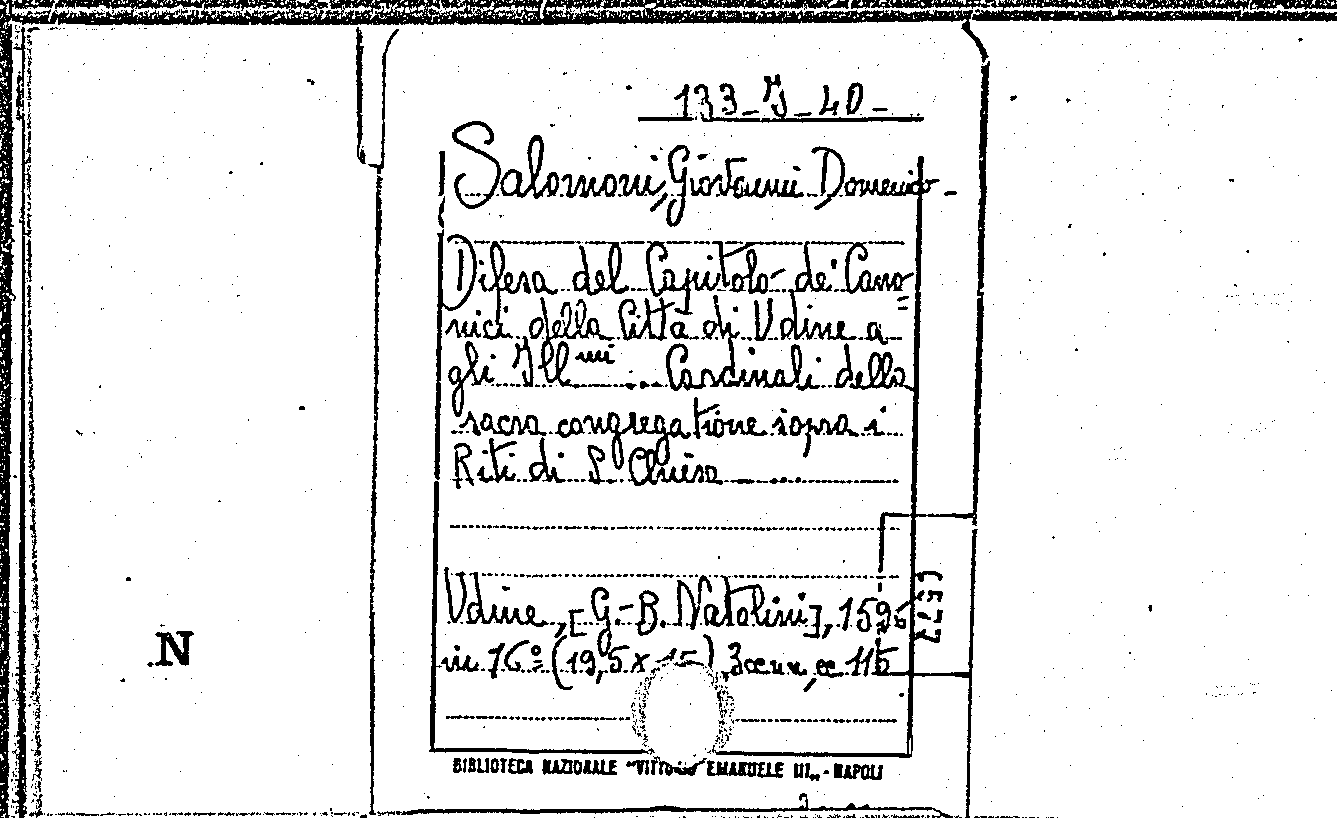 133-J-40-
Salomoni, Giovanni Domenico-
Difesa del Capitolo de' Cano=
nici della Città di Udine a-
gli Ill.mi ... Cardinali della
sacra congregatione sopra i
Riti di S. Chiesa ....
Udine, [G.-B. Natolini], 1596
in 16º (19,5 x 15) 3cc nn, cc 115
(577
N
BIBLIOTECA NAZIONALE "VITTORIO EMANUELE III„ - NAPOLI